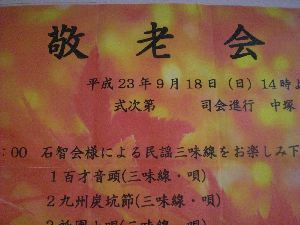 敬老会
平成23年9月18日(日)14時よ
式次第　司会進行　中塚
:00 石智会様による民謡三味線をお楽しみ下
1百才音頭(三味線・唄)
2九州炭坑節(三味線・唄)
3祇園小唄(三味線・唄)